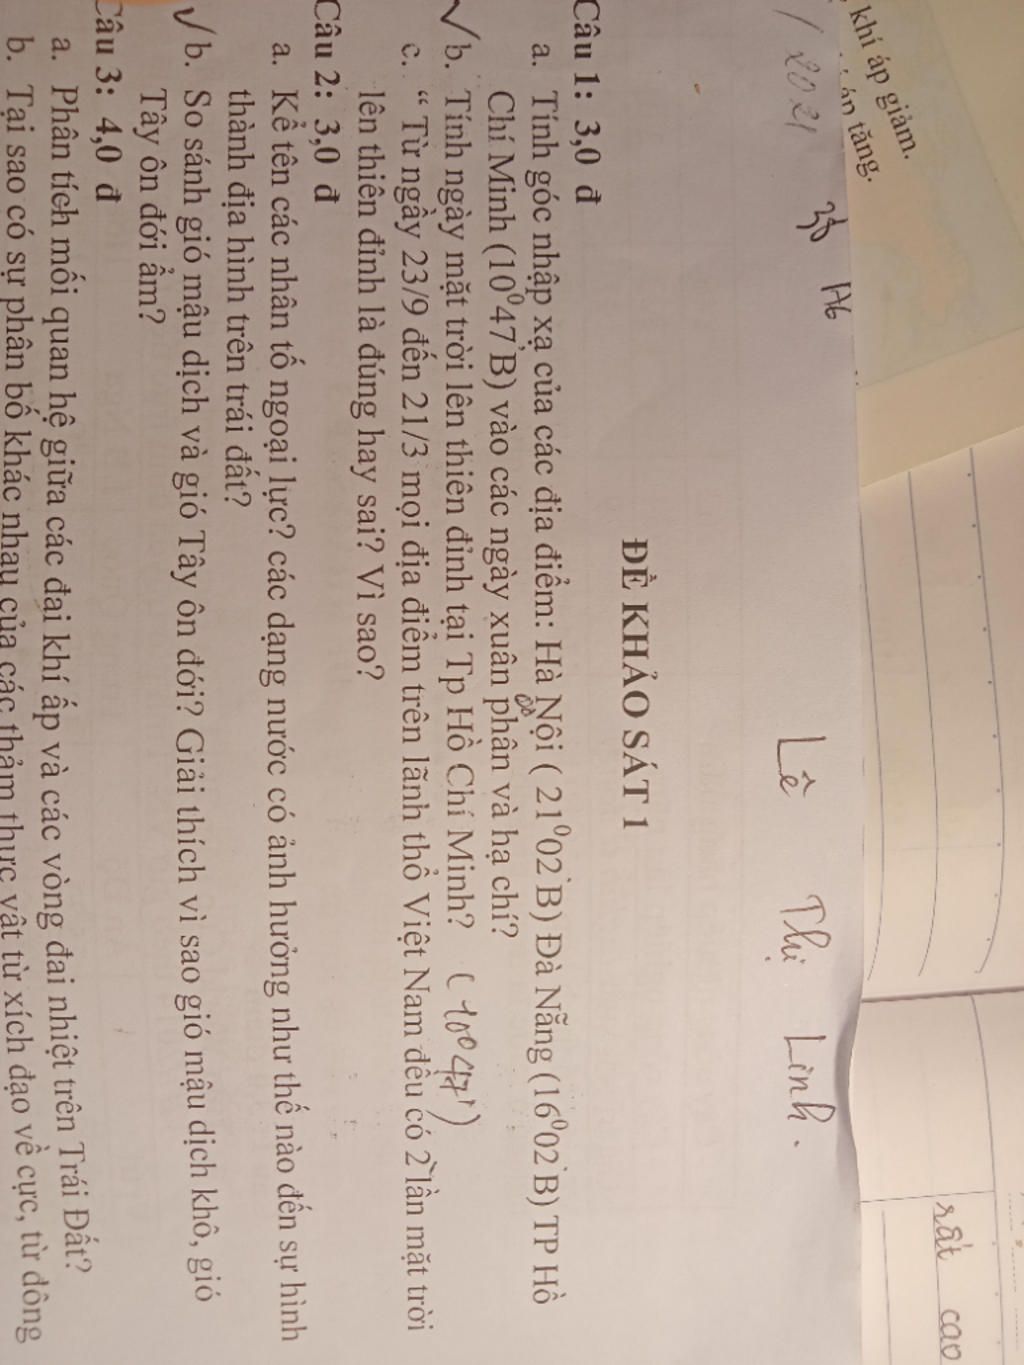 khí áp giảm.
tăng.
/ 2021
Lê Thị Linh.
rất cao
ĐỀ KHẢO SÁT 1
Câu 1: 3,0 đ
a. Tính góc nhập xạ của các địa điểm: Hà Nội ( 21⁰02`B) Đà Nẵng (16⁰02`B) TP Hồ
Chí Minh (10⁰47`B) vào các ngày xuân phân và hạ chí?
√ b. Tính ngày mặt trời lên thiên đỉnh tại Tp Hồ Chí Minh? ( 10⁰47')
c. “ Từ ngày 23/9 đến 21/3 mọi địa điểm trên lãnh thổ Việt Nam đều có 2 lần mặt trời
lên thiên đỉnh là đúng hay sai? Vì sao?
Câu 2: 3,0 đ
a. Kể tên các nhân tố ngoại lực? các dạng nước có ảnh hưởng như thế nào đến sự hình
thành địa hình trên trái đất?
√ b. So sánh gió mậu dịch và gió Tây ôn đới? Giải thích vì sao gió mậu dịch khô, gió
Tây ôn đới ẩm?
Câu 3: 4,0 đ
a. Phân tích mối quan hệ giữa các đai khí áp và các vòng đai nhiệt trên Trái Đất?
b. Tại sao có sự phân bố khác nhau của các thảm thực vật từ xích đạo về cực, từ đông